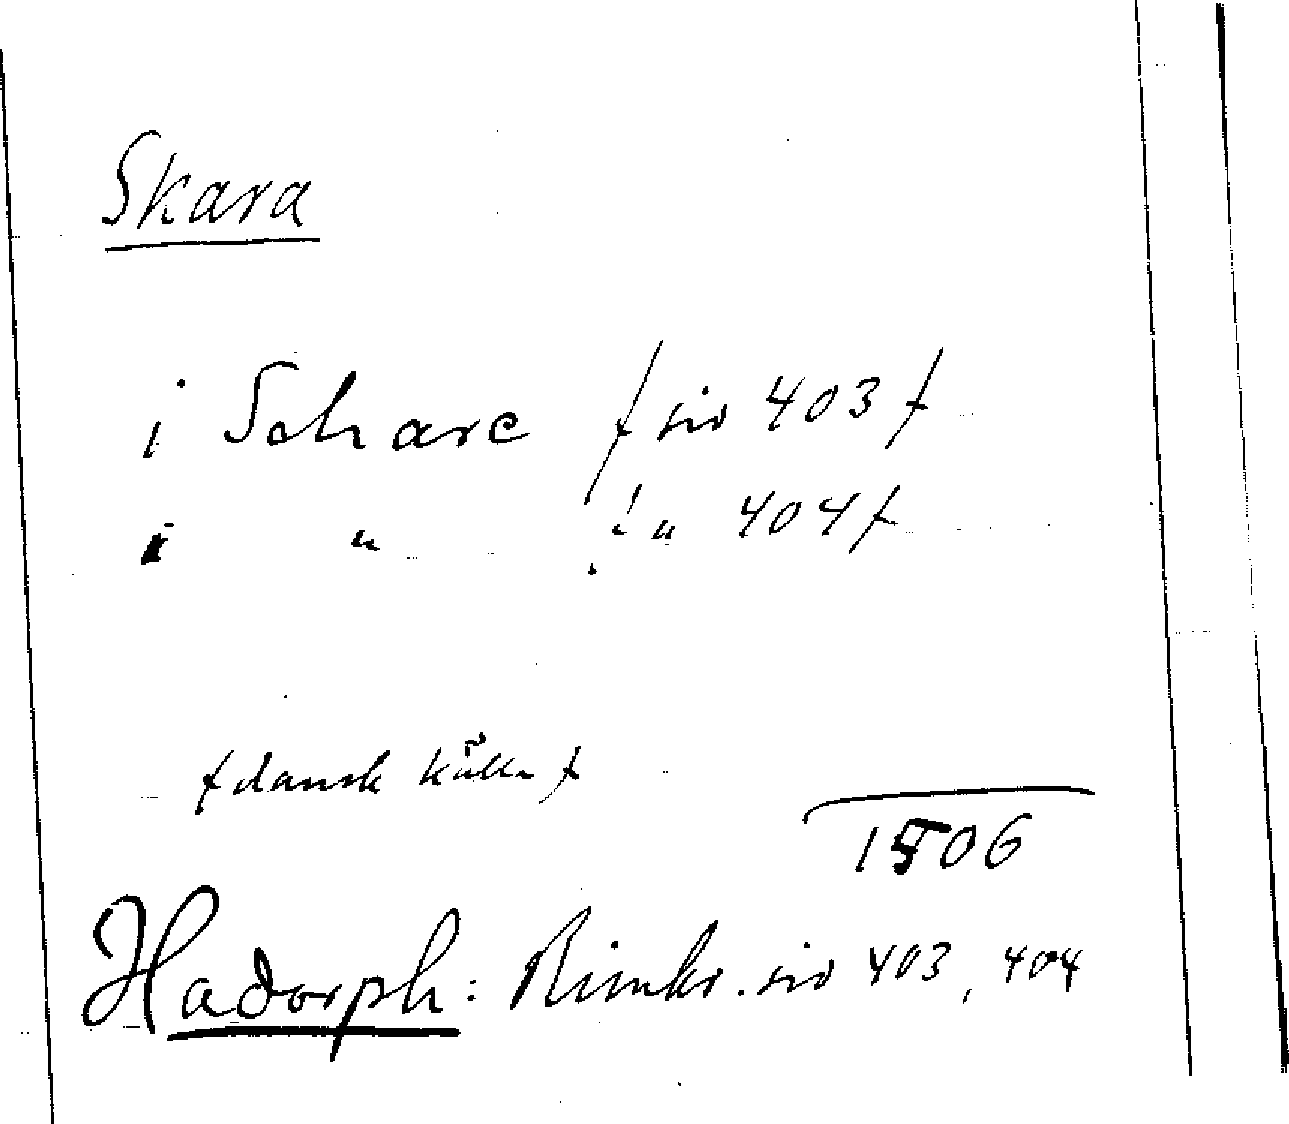 Skara
i Schare / sid 403 /
i " " 404 /
/ dansk källa /
1506
Hadorph: Rimkr. sid 403, 404